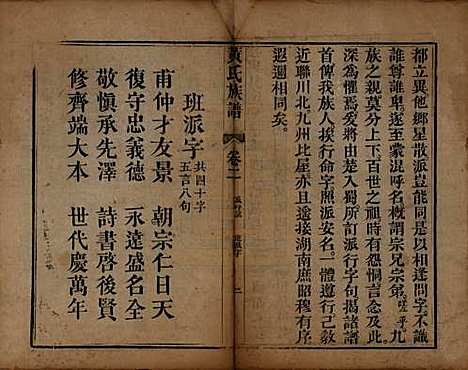 都立異他鄉星散派豈能同是以相逢問字不識
誰尊誰卑遂至蒙混呼名概謂宗兄宗弟嗟乎九
族之親莫分上下百世之祖時有怨恫言念及此
深為惕焉爰將入蜀所訂派行字句揭諸譜
首俾我族人挨行命字照派安名一體遵行已教
近聯川北九州比屋亦且遙接湖南庶昭穆有
遐邇相同矣
黃氏族譜
卷二
班派字
二
班派字
共四十字
五言八句
甫仲才友景 朝宗仁日天
復守忠義德 永遠盛名全
敬慎承先澤 詩書啓後賢
修齊端大本 世代慶萬年